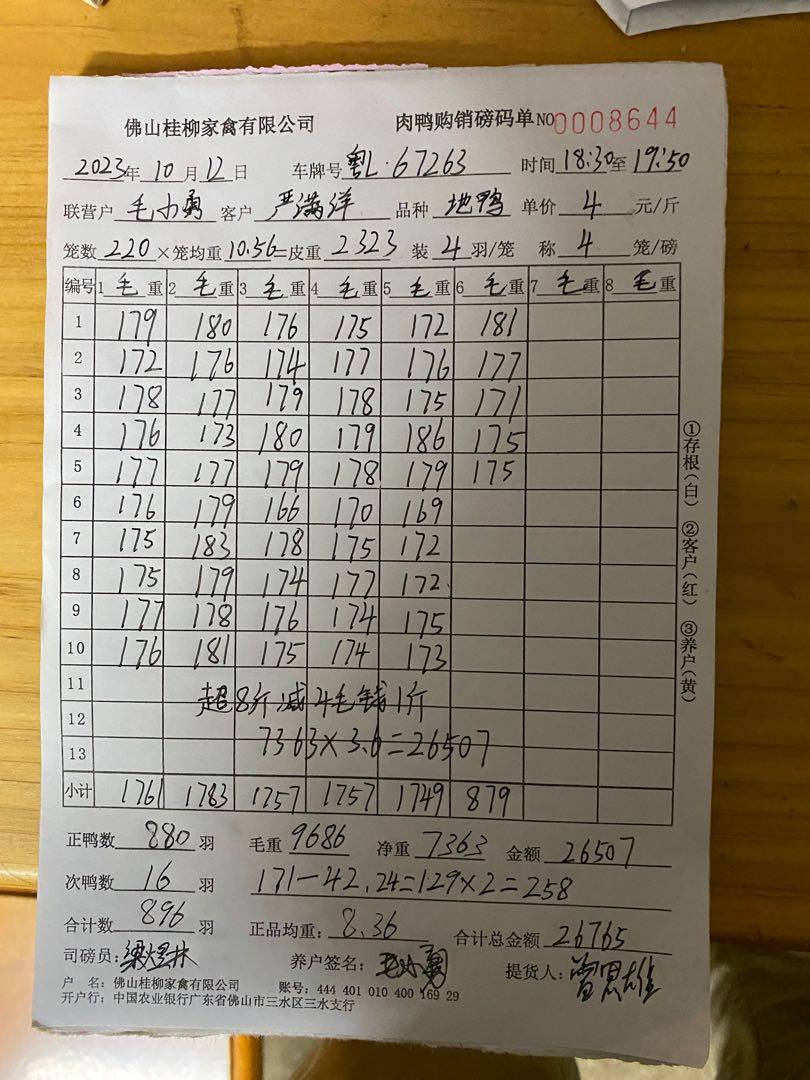 佛山桂柳家禽有限公司 肉鸭购销磅码单 NO 0008644
2023年 10月 12日 车牌号 粤L·67263 时间 18:30 至 19:50
联营户 毛小勇 客户 严满洋 品种 地鸭 单价 4 元/斤
笼数 220 ×笼均重 10.56 =皮重 2323 装 4 羽/笼 称 4 笼/磅
编号 1 毛重 2 毛重 3 毛重 4 毛重 5 毛重 6 毛重 7 毛重 8 毛重
1 179 180 176 175 172 181
2 172 176 174 177 176 177
3 178 177 179 178 175 171
4 176 173 180 179 186 175
5 177 177 179 178 179 175
6 176 179 166 170 169
7 175 183 178 175 172
8 175 179 174 177 172
9 177 178 176 174 175
10 176 181 175 174 173
11 超8斤减4毛钱1斤
12 7363×3.6=26507
13
小计 1761 1783 1757 1757 1749 879
正鸭数 880 羽 毛重 9686 净重 7363 金额 26507
次鸭数 16 羽 171-42.24=129×2=258
合计数 896 羽 正品均重: 8.36 合计总金额 26765
司磅员: 梁煜林 养户签名: 毛小勇 提货人: 曾思雄
户 名: 佛山桂柳家禽有限公司 账号: 444 401 010 400 169 29
开户行: 中国农业银行广东省佛山市三水区三水支行
①存根(白) ②客户(红) ③养户(黄)